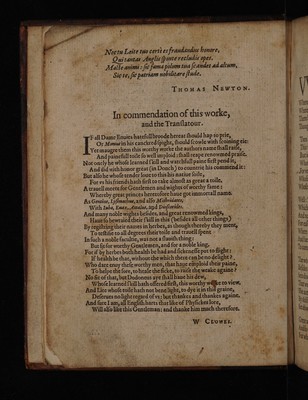 Nec tu Laite tuo certè es fraudandus honore,
Qui tantas Anglis sponte recludis opes.
Macte animi: sic fama polum tua scandet ad altum,
Sic te, sic patriam nobilitare stude.
THOMAS NEWTON.
In commendation of this worke,
and the Translatour.
IF all Dame Enuies hatefull broode hereat should hap to prie,
Or Momus in his cancred spight, should scowle with scouling eie:
Yet maugre them this worthy worke the authors name shall raise,
And painefull toile so well imploid: shall reape renowned praise.
Not onely he whose learned skill and watchfull paine first pend it,
And did with honor great (in Douch) to countrie his commend it:
But also he whose tender loue to this his natiue soile,
For vs his friends hath deid to take almost as great a toile.
A trauell meete for Gentlemen and wights of worthy fame:
Whereby great princes heretofore haue got immortall name.
As Gentius, Lysimachus, and also Mithridates:
With Iuba, Euax, Attalus, and Dioscorides.
And many noble wights besides, and great renowmed kings,
Haue so bewraied their skill in this (besides all other things)
By registring their names in herbes, as though thereby they ment,
To testifie to all degrees their toile and trauell spent
In such a noble facultie, was not a seruile thing:
But fit for worthy Gentlemen, and for a noble king.
For if by herbes both health be had and sicknes eke put to flight:
If health be that, without the which there can be no delight:
Who dare enuy these worthy men, that haue imploid their paine,
To helpe the sore, to heale the sicke, to raise the weake againe?
No sir of that, but Dodonæus aye shall haue his dew,
Whose learned skill hath offred first, this worthy worke to vew.
And Lite whose toile hath not bene light, to dye it in this graine,
Deserues no light regard of vs: but thankes and thankes againe.
And sure I am, all English harts that like of Physickes lore,
Will also like this Gentleman: and thanke him much therefore.
W CLOWES.